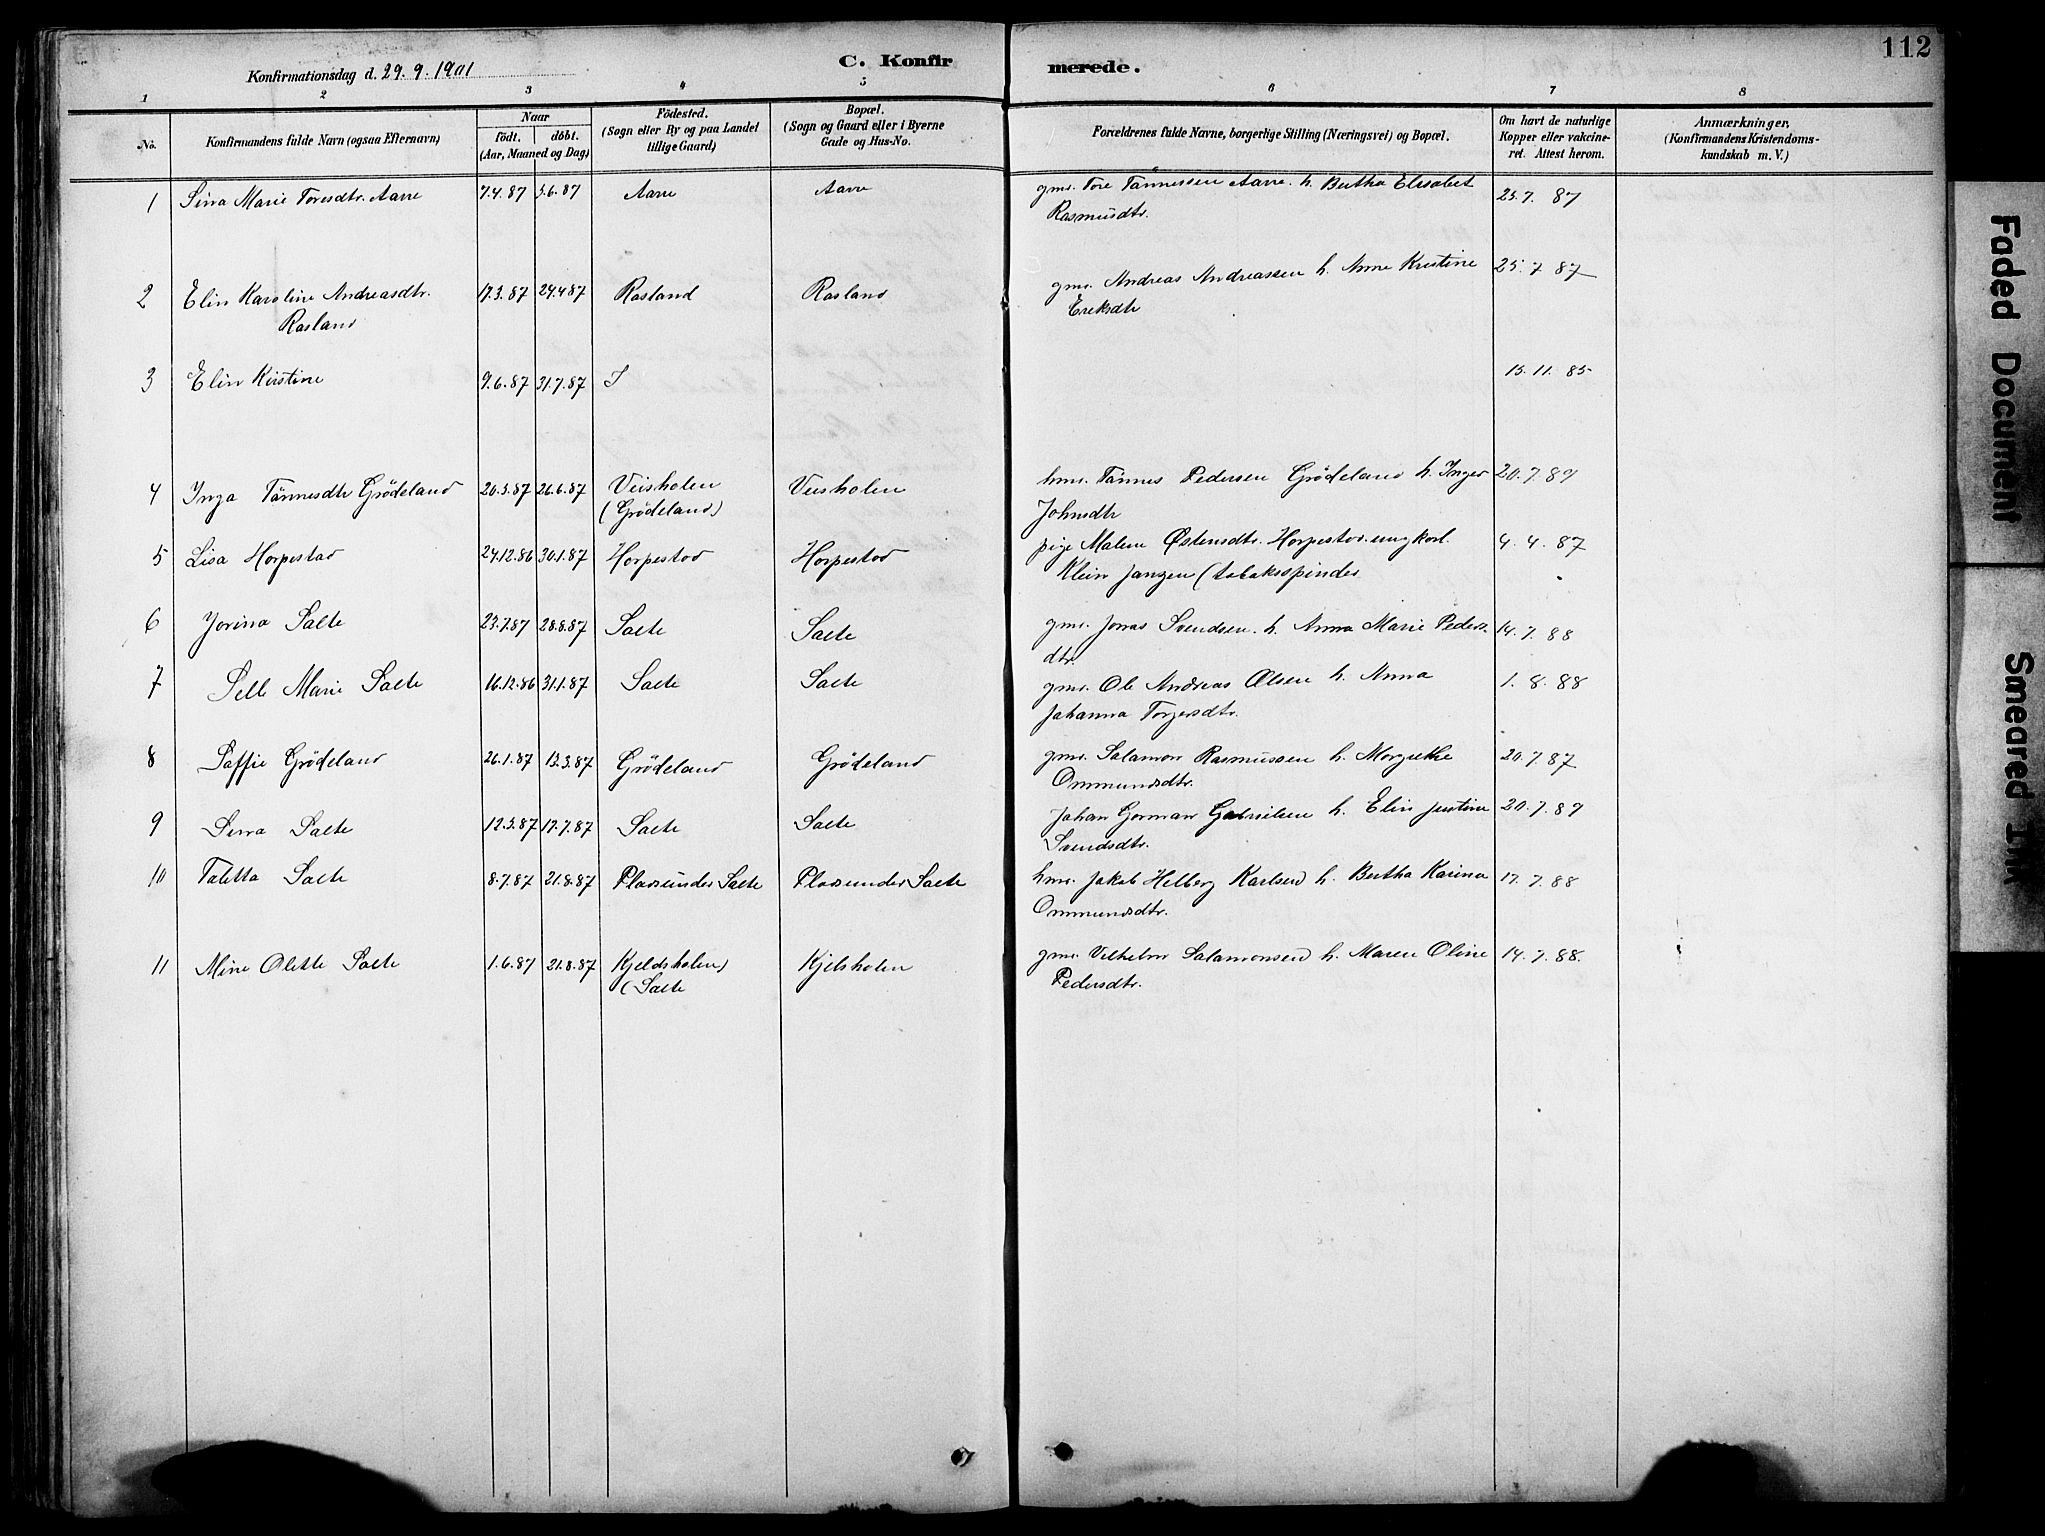 112
Konfirmationsdag d. 29. 9. 1901
C. Konfirmerede.
1 2 3 4 5 6 7 8
No.
Konfirmandens fulde Navn (ogsaa Efternavn)
Naar
födt. döbt.
(Aar, Maaned og Dag)
Födested.
(Sogn eller By og paa Landet
tillige Gaard)
Bopæl.
(Sogn og Gaard eller i Byerne
Gade og Hus-No.
Forældrenes fulde Navne, borgerlige Stilling (Næringsvei) og Bopæl.
Om havt de naturlige
Kopper eller vakcine-
ret. Attest herom.
Anmærkninger,
(Konfirmandens Kristendoms-
kundskab m. V.)
1 Sina Marie Toresdtr. Aarre 7.4.87 5.6.87 Aarre Aarre gmr. Tore Tönnessen Aarre h. Bertha Elisabet 25.7.87
Rasmusdtr.
2 Elin Karoline Andreasdtr. 17.3.87 24.4.87 Rosland Rosland gmr. Andreas Andreassen h. Anne Kristine 25.7.87
Rosland Eriksdtr
3 Elin Kirstine 9.6.87 31.7.87 I 15.11.85
4 Inga Tönnesdtr Grödeland 20.3.87 26.6.87 Veisholen Veisholen hmr. Tönnes Pedersen Grödeland h. Inger 20.7.89
(Grödeland) Johnsdtr
5 Lisa Horpestad 24.12.86 30.1.87 Horpestad Horpestad pige Malene Østensdtr. Horpestad. ungkarl 4.4.87
Klein Janzen (tobaksspinder
6 Jorina Salte 23.7.87 28.8.87 Salte Salte gmr. Jonas Svendsen h. Anna Marie Peders- 14.7.88
dtr.
7 Sell Marie Salte 16.12.86 31.1.87 Salte Salte gmr. Ole Andreas Olsen h. Anna 1.8.88
Johanna Torgersdtr.
8 Soffie Grödeland 26.1.87 13.3.87 Grödeland Grödeland gmr. Salamon Rasmussen h. Margrethe 20.7.87
Ommundsdtr.
9 Sina Salte 12.3.87 17.7.87 Salte Salte Johan Gorman Gabrielsen h. Elin Justine 20.7.89
Svendsdtr.
10 Taletta Salte 8.7.87 21.8.87 Plads under Salte Plads under Salte hmr. Jakob Helberg Karlsen h. Bertha Karina 17.7.88
Ommundsdtr.
11 Mine Olette Salte 1.6.87 21.8.87 Kjeldsholen) Kjelsholen gmr. Vilhelm Salamonsen h. Maren Oline 14.7.88.
(Salte Pedersdtr.
Faded Document
Smeared Ink